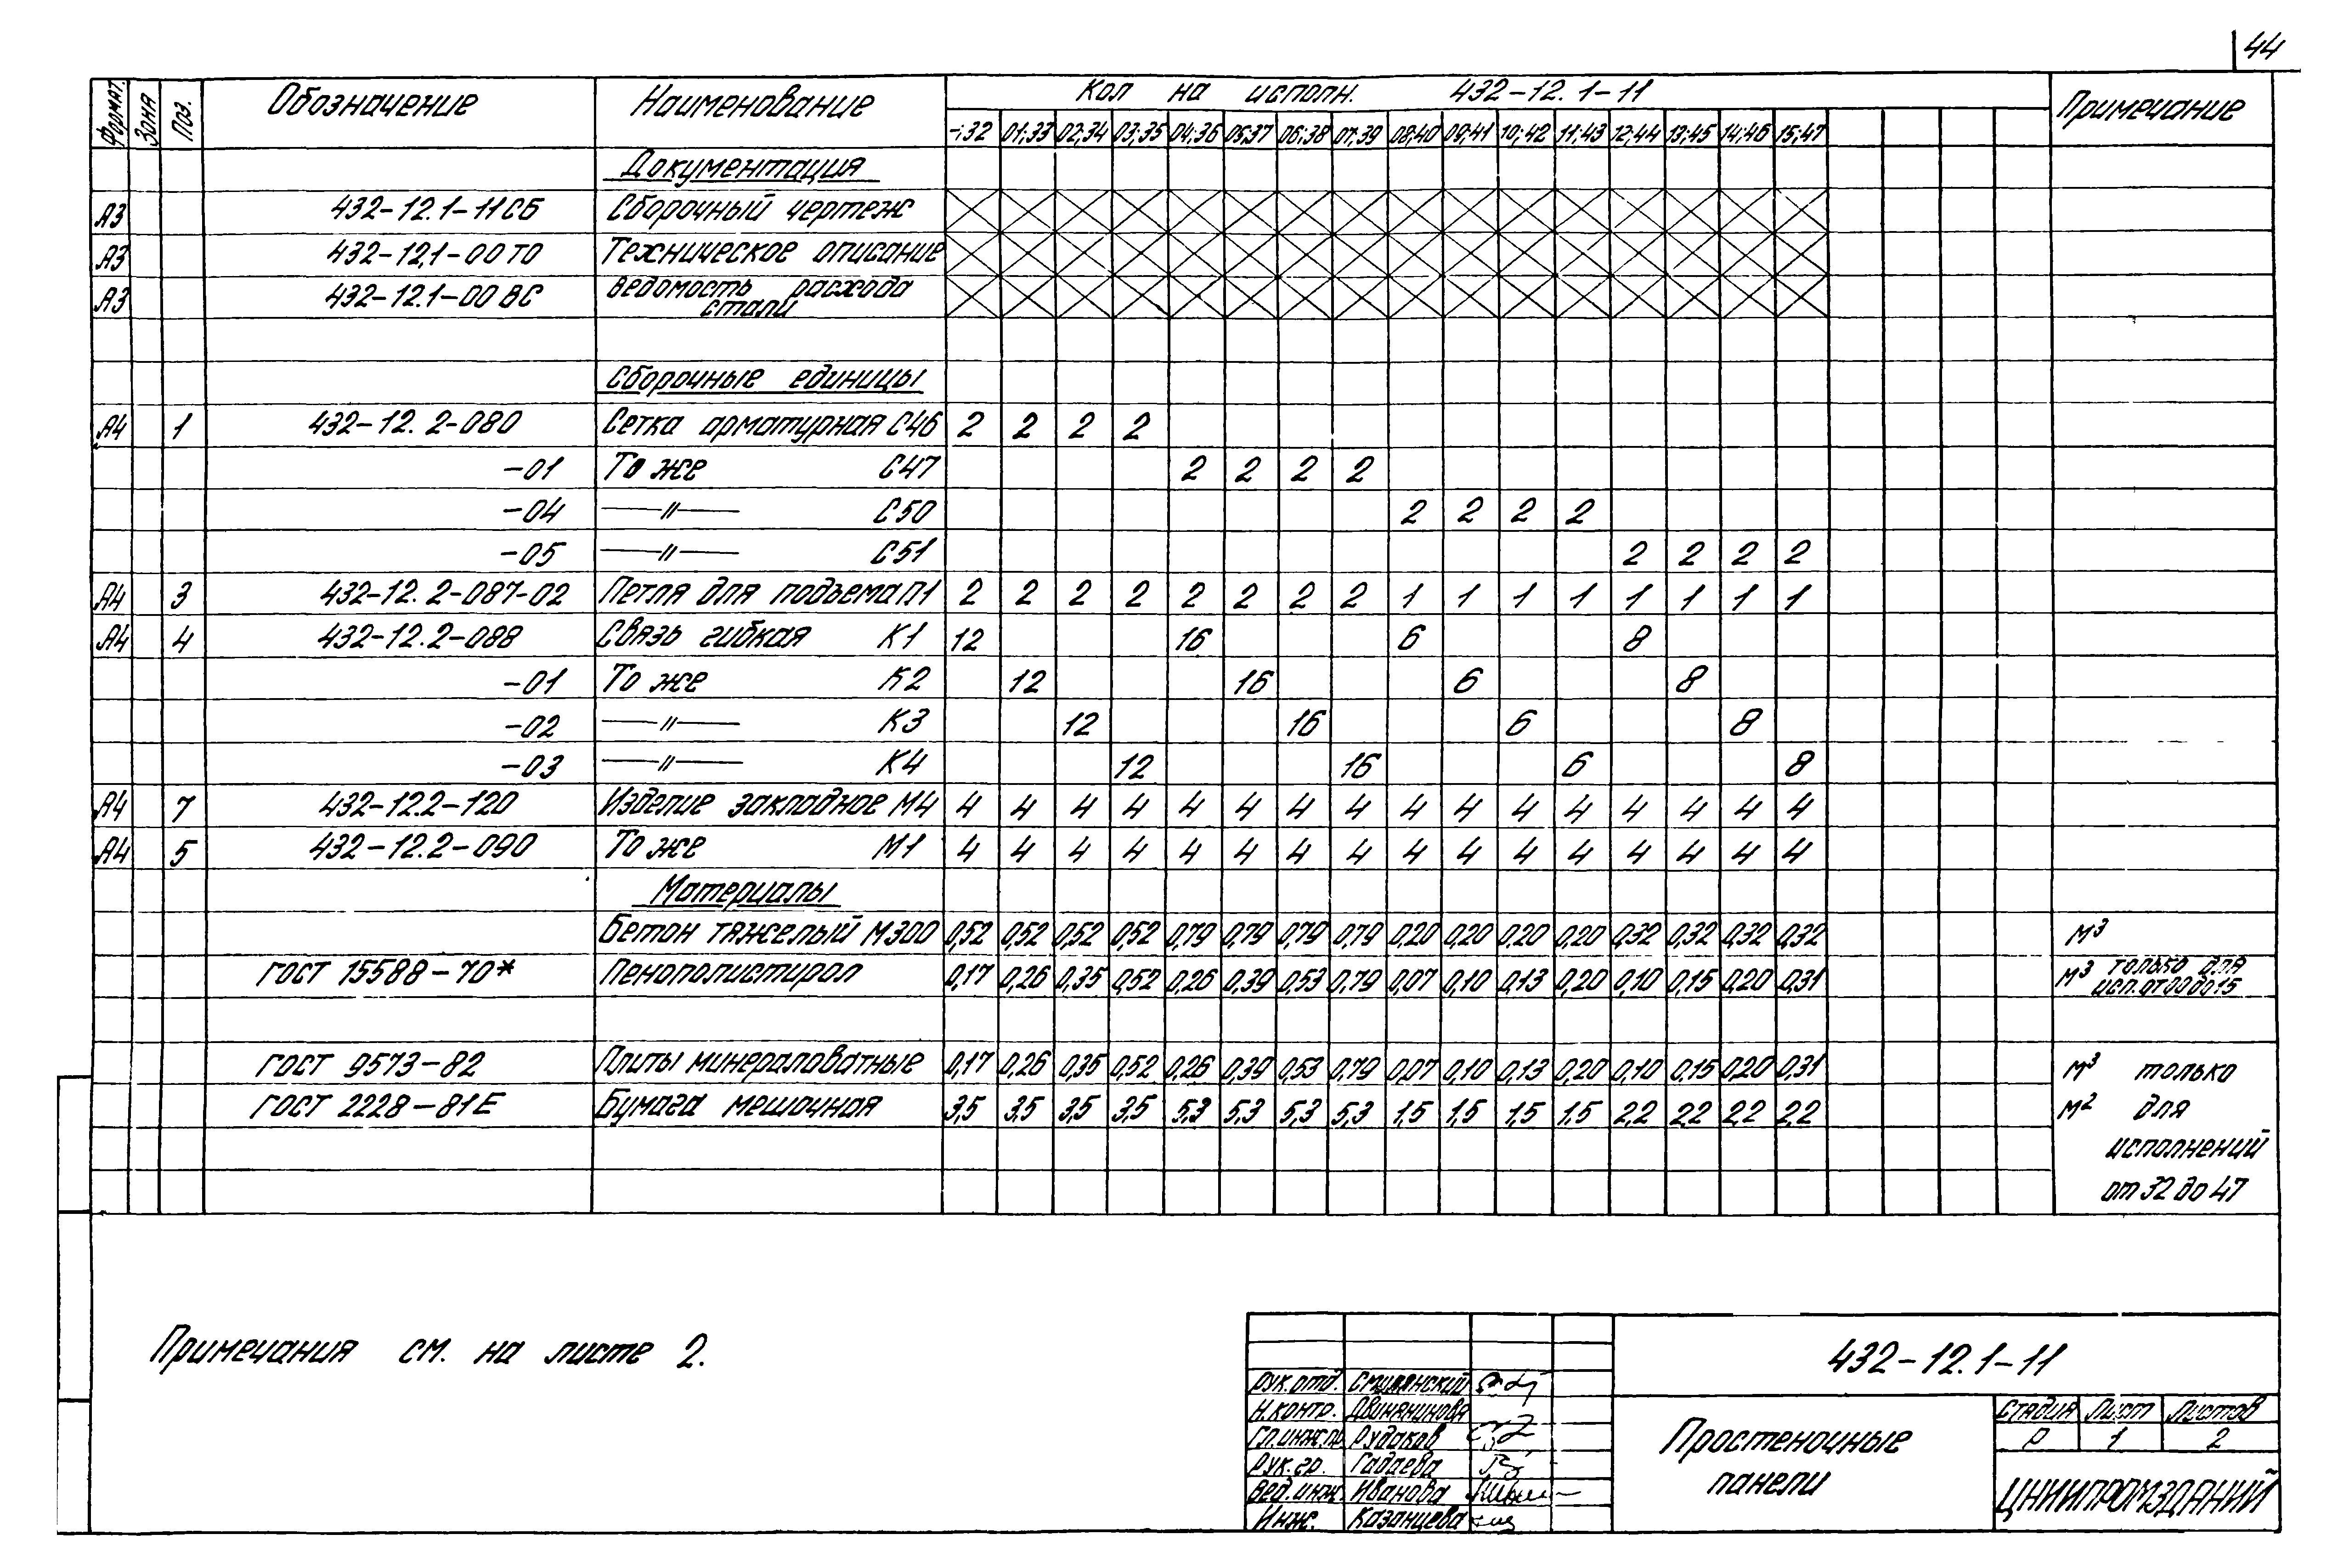 44
Формат. Зона Поз. Обозначение Наименование Кол на исполн. 432-12.1-11 Примечание
-;32 01;33 02;34 03;35 04;36 05;37 06;38 07;39 08;40 09;41 10;42 11;43 12;44 13;45 14;46 15;47
Документация
А3 432-12.1-11СБ Сборочный чертеж
А3 432-12,1-00ТО Техническое описание
А3 432-12.1-00ВС Ведомость расхода
стали
Сборочные единицы
А4 1 432-12.2-080 Сетка арматурная С46 2 2 2 2
-01 То же С47 2 2 2 2
-04 —〃— С50 2 2 2 2
-05 —〃— С51 2 2 2 2
А4 3 432-12.2-087-02 Петля для подъема П1 2 2 2 2 2 2 2 2 1 1 1 1 1 1 1 1
А4 4 432-12.2-088 Связь гибкая К1 12 16 6 8
-01 То же К2 12 16 6 8
-02 —〃— К3 12 16 6 8
-03 —〃— К4 12 16 6 8
А4 7 432-12.2-120 Изделие закладное М4 4 4 4 4 4 4 4 4 4 4 4 4 4 4 4 4
А4 5 432-12.2-090 То же М1 4 4 4 4 4 4 4 4 4 4 4 4 4 4 4 4
Материалы
Бетон тяжелый М300 0,52 0,52 0,52 0,52 0,79 0,79 0,79 0,79 0,20 0,20 0,20 0,20 0,32 0,32 0,32 0,32 м³
ГОСТ 15588-70* Пенополистирол 0,17 0,26 0,35 0,52 0,26 0,39 0,53 0,79 0,07 0,10 0,13 0,20 0,10 0,15 0,20 0,31 м³ только для
исп. от 00 до 15
ГОСТ 9573-82 Плиты минераловатные 0,17 0,26 0,35 0,52 0,26 0,39 0,53 0,79 0,07 0,10 0,13 0,20 0,10 0,15 0,20 0,31 м³ только
ГОСТ 2228-81Е Бумага мешочная 3,5 3,5 3,5 3,5 5,3 5,3 5,3 5,3 1,5 1,5 1,5 1,5 2,2 2,2 2,2 2,2 м² для
исполнений
от 32 до 47
Примечания см. на листе 2.
432-12.1-11
Рук. отд. Смилянский
Н.контр. Двинянинова
Гл.инж.пр. Рудаков
Рук. гр. Гадаева
Вед. инж. Иванова
Инж. Казанцева
Простеночные
панели
Стадия Лист Листов
Р 1 2
ЦНИИПРОМЗДАНИЙ